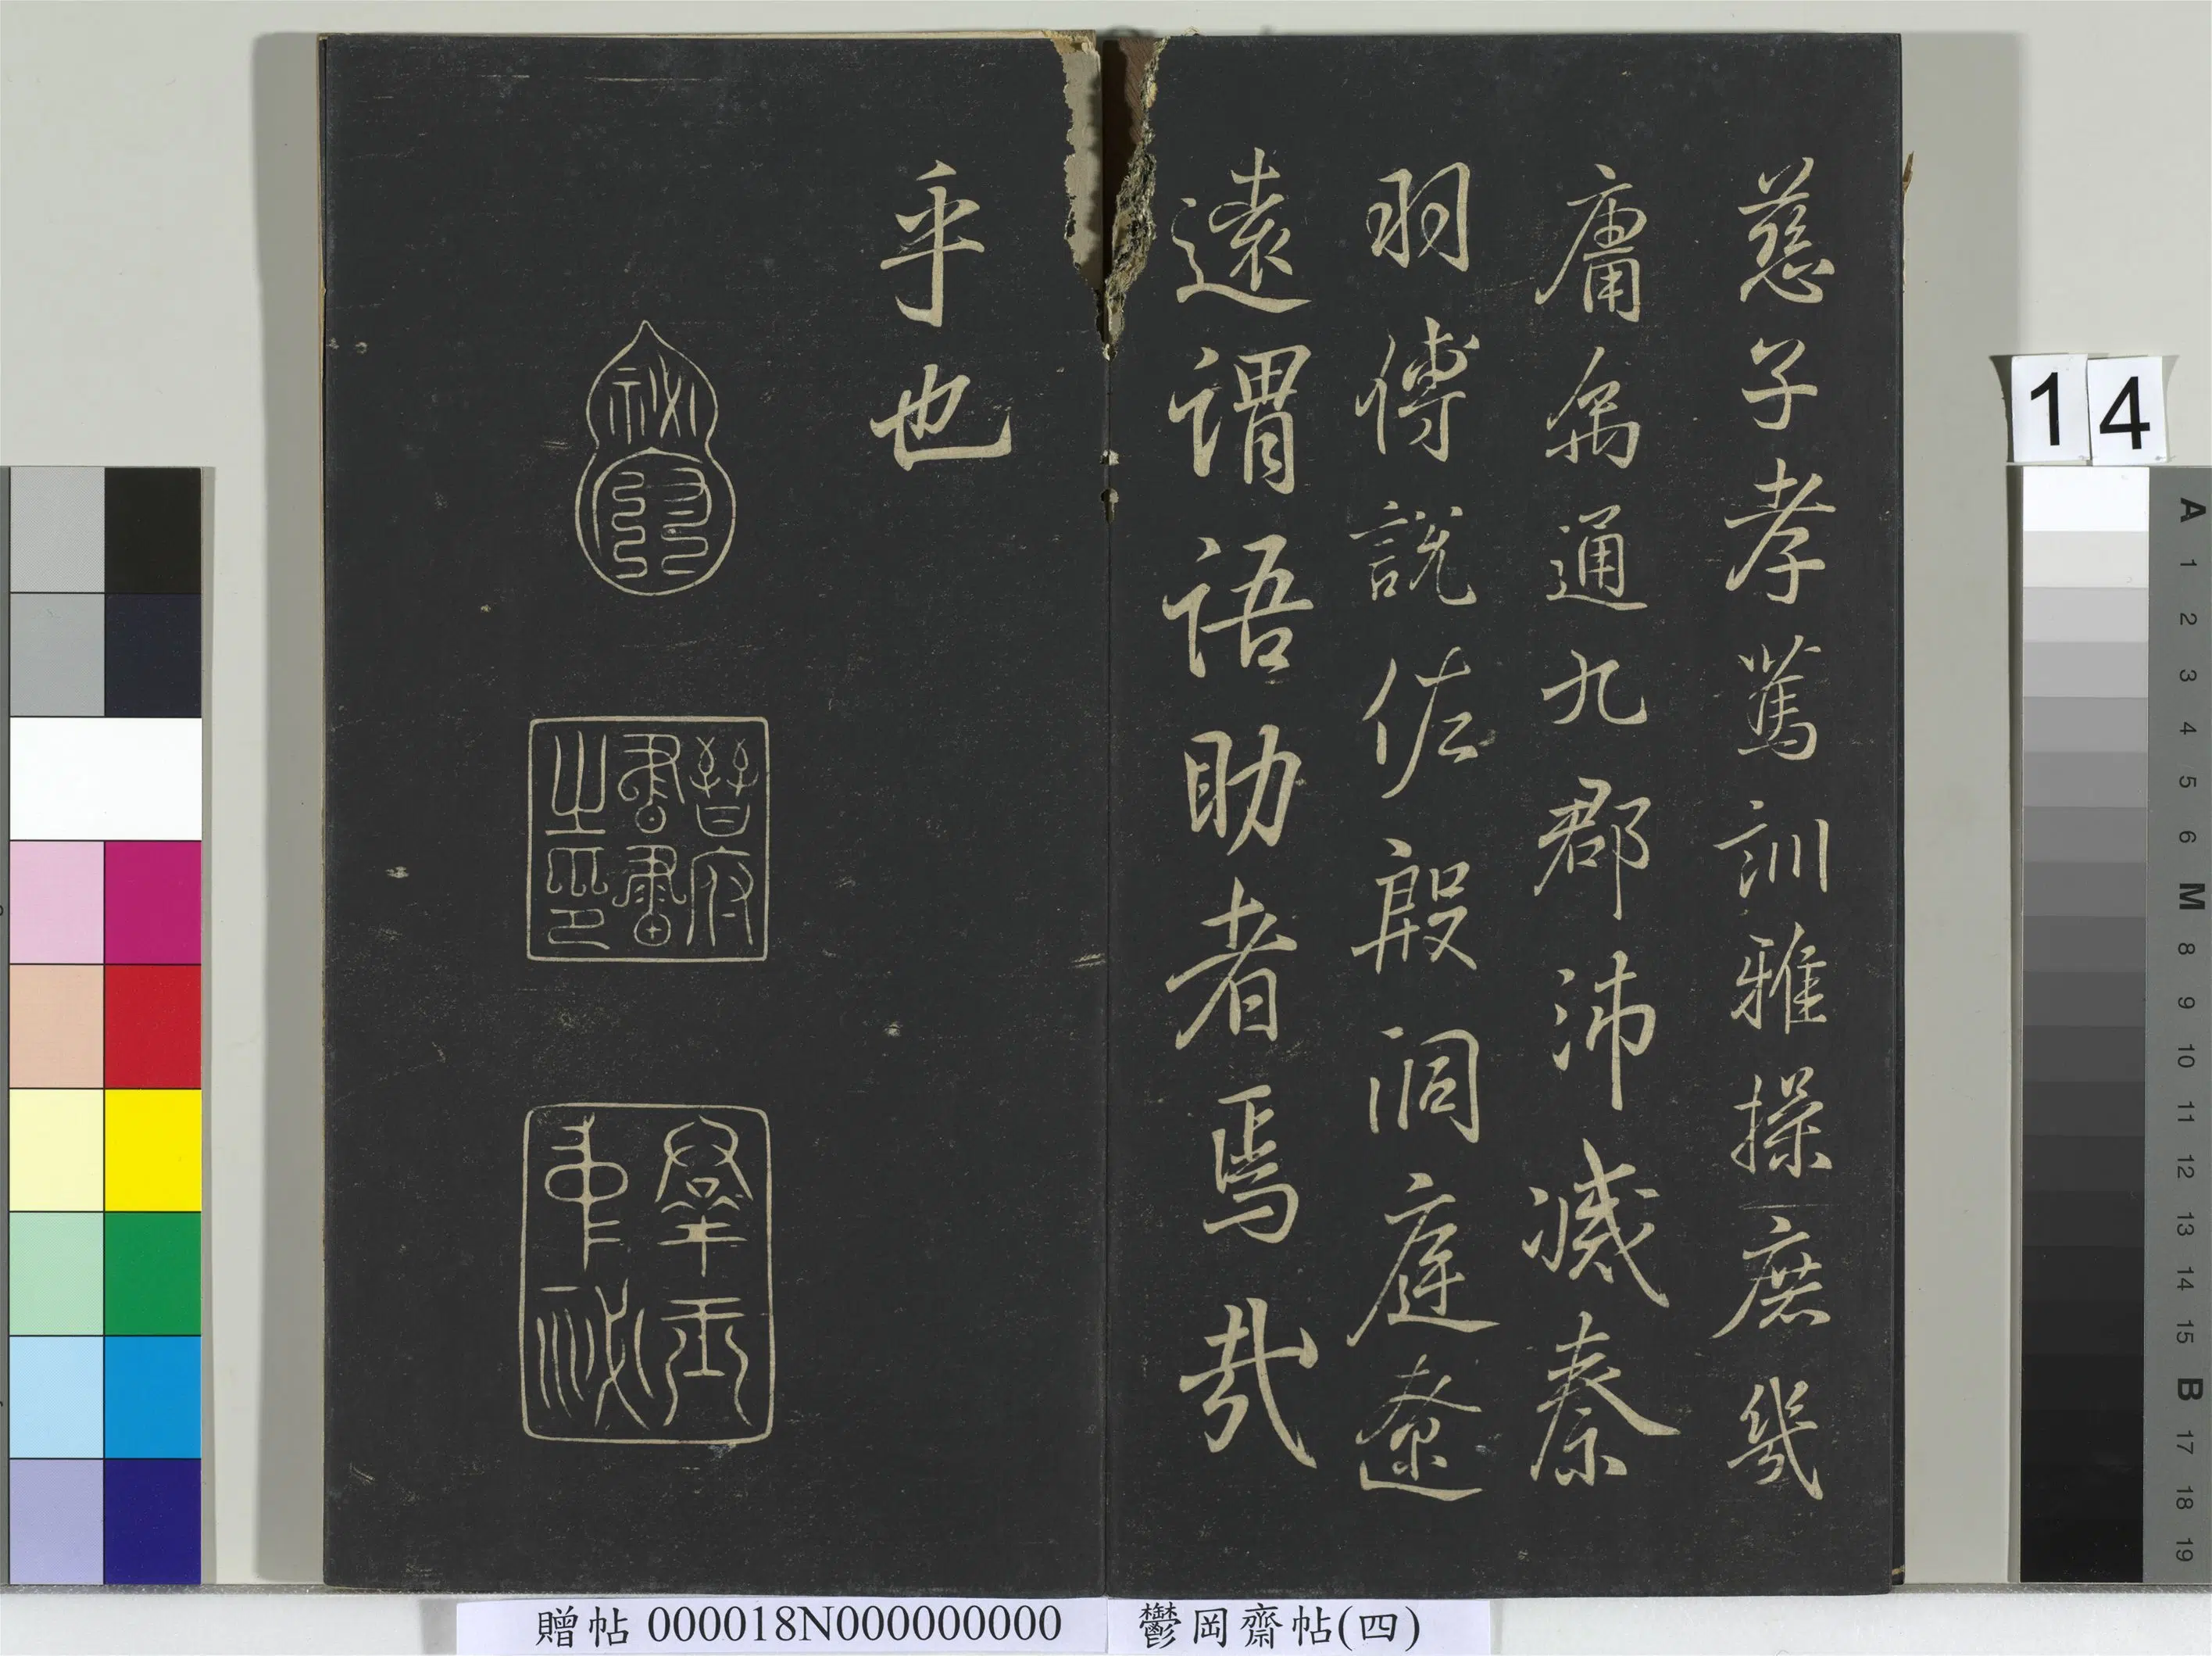 慈子孝篤訓雅操庶幾
庸禹通九郡沛滅秦
羽傅說佐殷洞庭遼
遠謂語助者焉哉
乎也
晉府書畫之印
羣玉中祕
14
贈帖 000018N000000000
鬱岡齋帖(四)
A 1 2 3 4 5 6 M 8 9 10 11 12 13 14 15 B 17 18 19